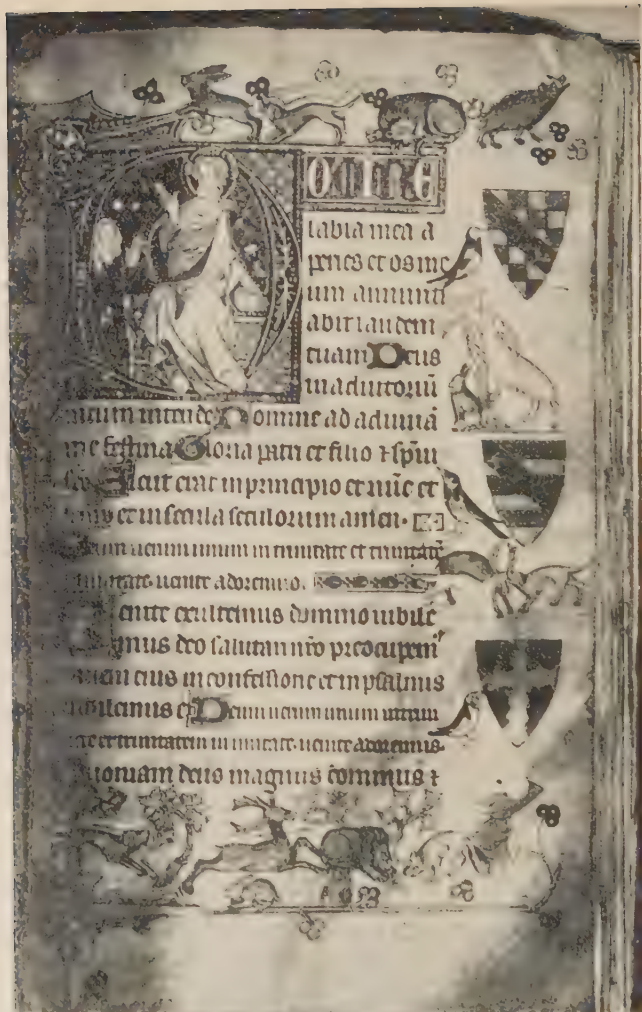 OMINE
labia mea a
peries et os me
um annunti
abit laudem
tuam Deus
in adiutoriū
meum intende Domine ad adiuuā
me festina Gloria patri et filio ⁊ sp̄ui
Sicut erat in principio et nūc et
et in secula seculorum amen.
uerum unum in trinitate et trinitatē
uenite adoremus.
enite exultemus domino iubile
mus deo salutari nr̄o preocupem᷒
eius in confessione et in psalmis
iubilemus ei Deum uerum unum in trini
et trinitatem in unitate. uenite adoremus.
uoniam deus magnus dominus ⁊